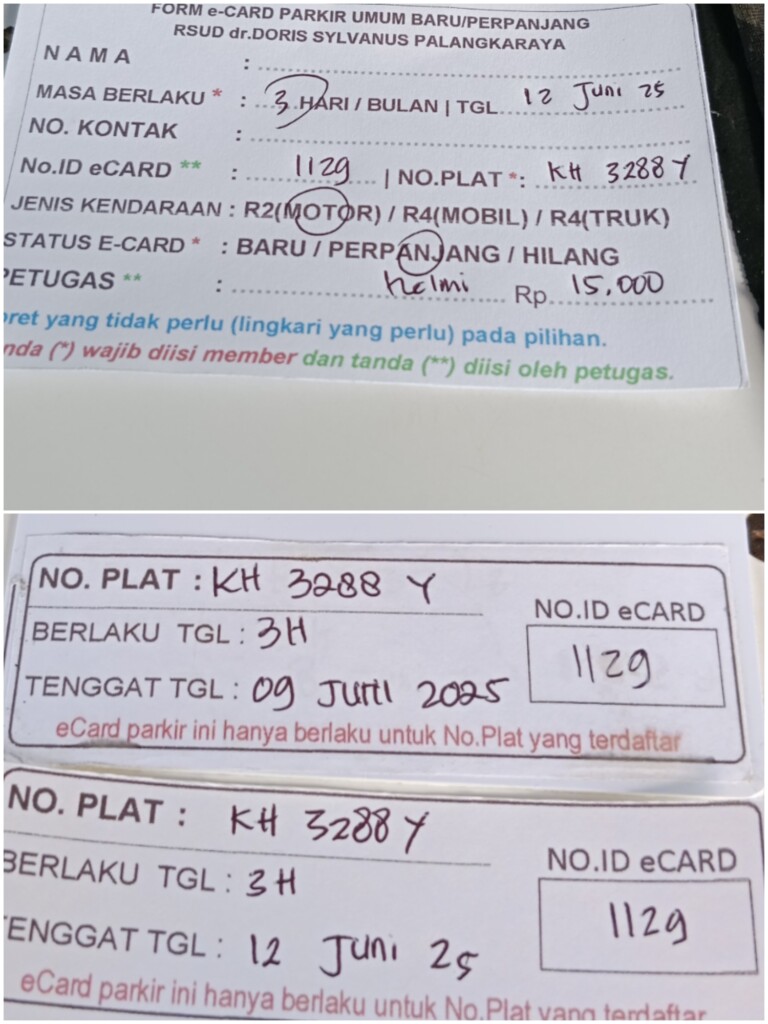 FORM e-CARD PARKIR UMUM BARU/PERPANJANG
RSUD dr.DORIS SYLVANUS PALANGKARAYA
NAMA :
MASA BERLAKU * : 3 HARI / BULAN | TGL. 12 Juni 25
NO. KONTAK :
No.ID eCARD ** : 1129 | NO.PLAT *: KH 3288 Y
JENIS KENDARAAN : R2(MOTOR) / R4(MOBIL) / R4(TRUK)
STATUS E-CARD * : BARU / PERPANJANG / HILANG
PETUGAS ** : helmi Rp. 15.000
oret yang tidak perlu (lingkari yang perlu) pada pilihan.
nda (*) wajib diisi member dan tanda (**) diisi oleh petugas.
NO. PLAT : KH 3288 Y
BERLAKU TGL : 3H
TENGGAT TGL : 09 Juni 2025
NO.ID eCARD
1129
eCard parkir ini hanya berlaku untuk No.Plat yang terdaftar
NO. PLAT : KH 3288 Y
BERLAKU TGL : 3H
ENGGAT TGL : 12 Juni 25
NO.ID eCARD
1129
eCard parkir ini hanya berlaku untuk No.Plat yang terdaftar